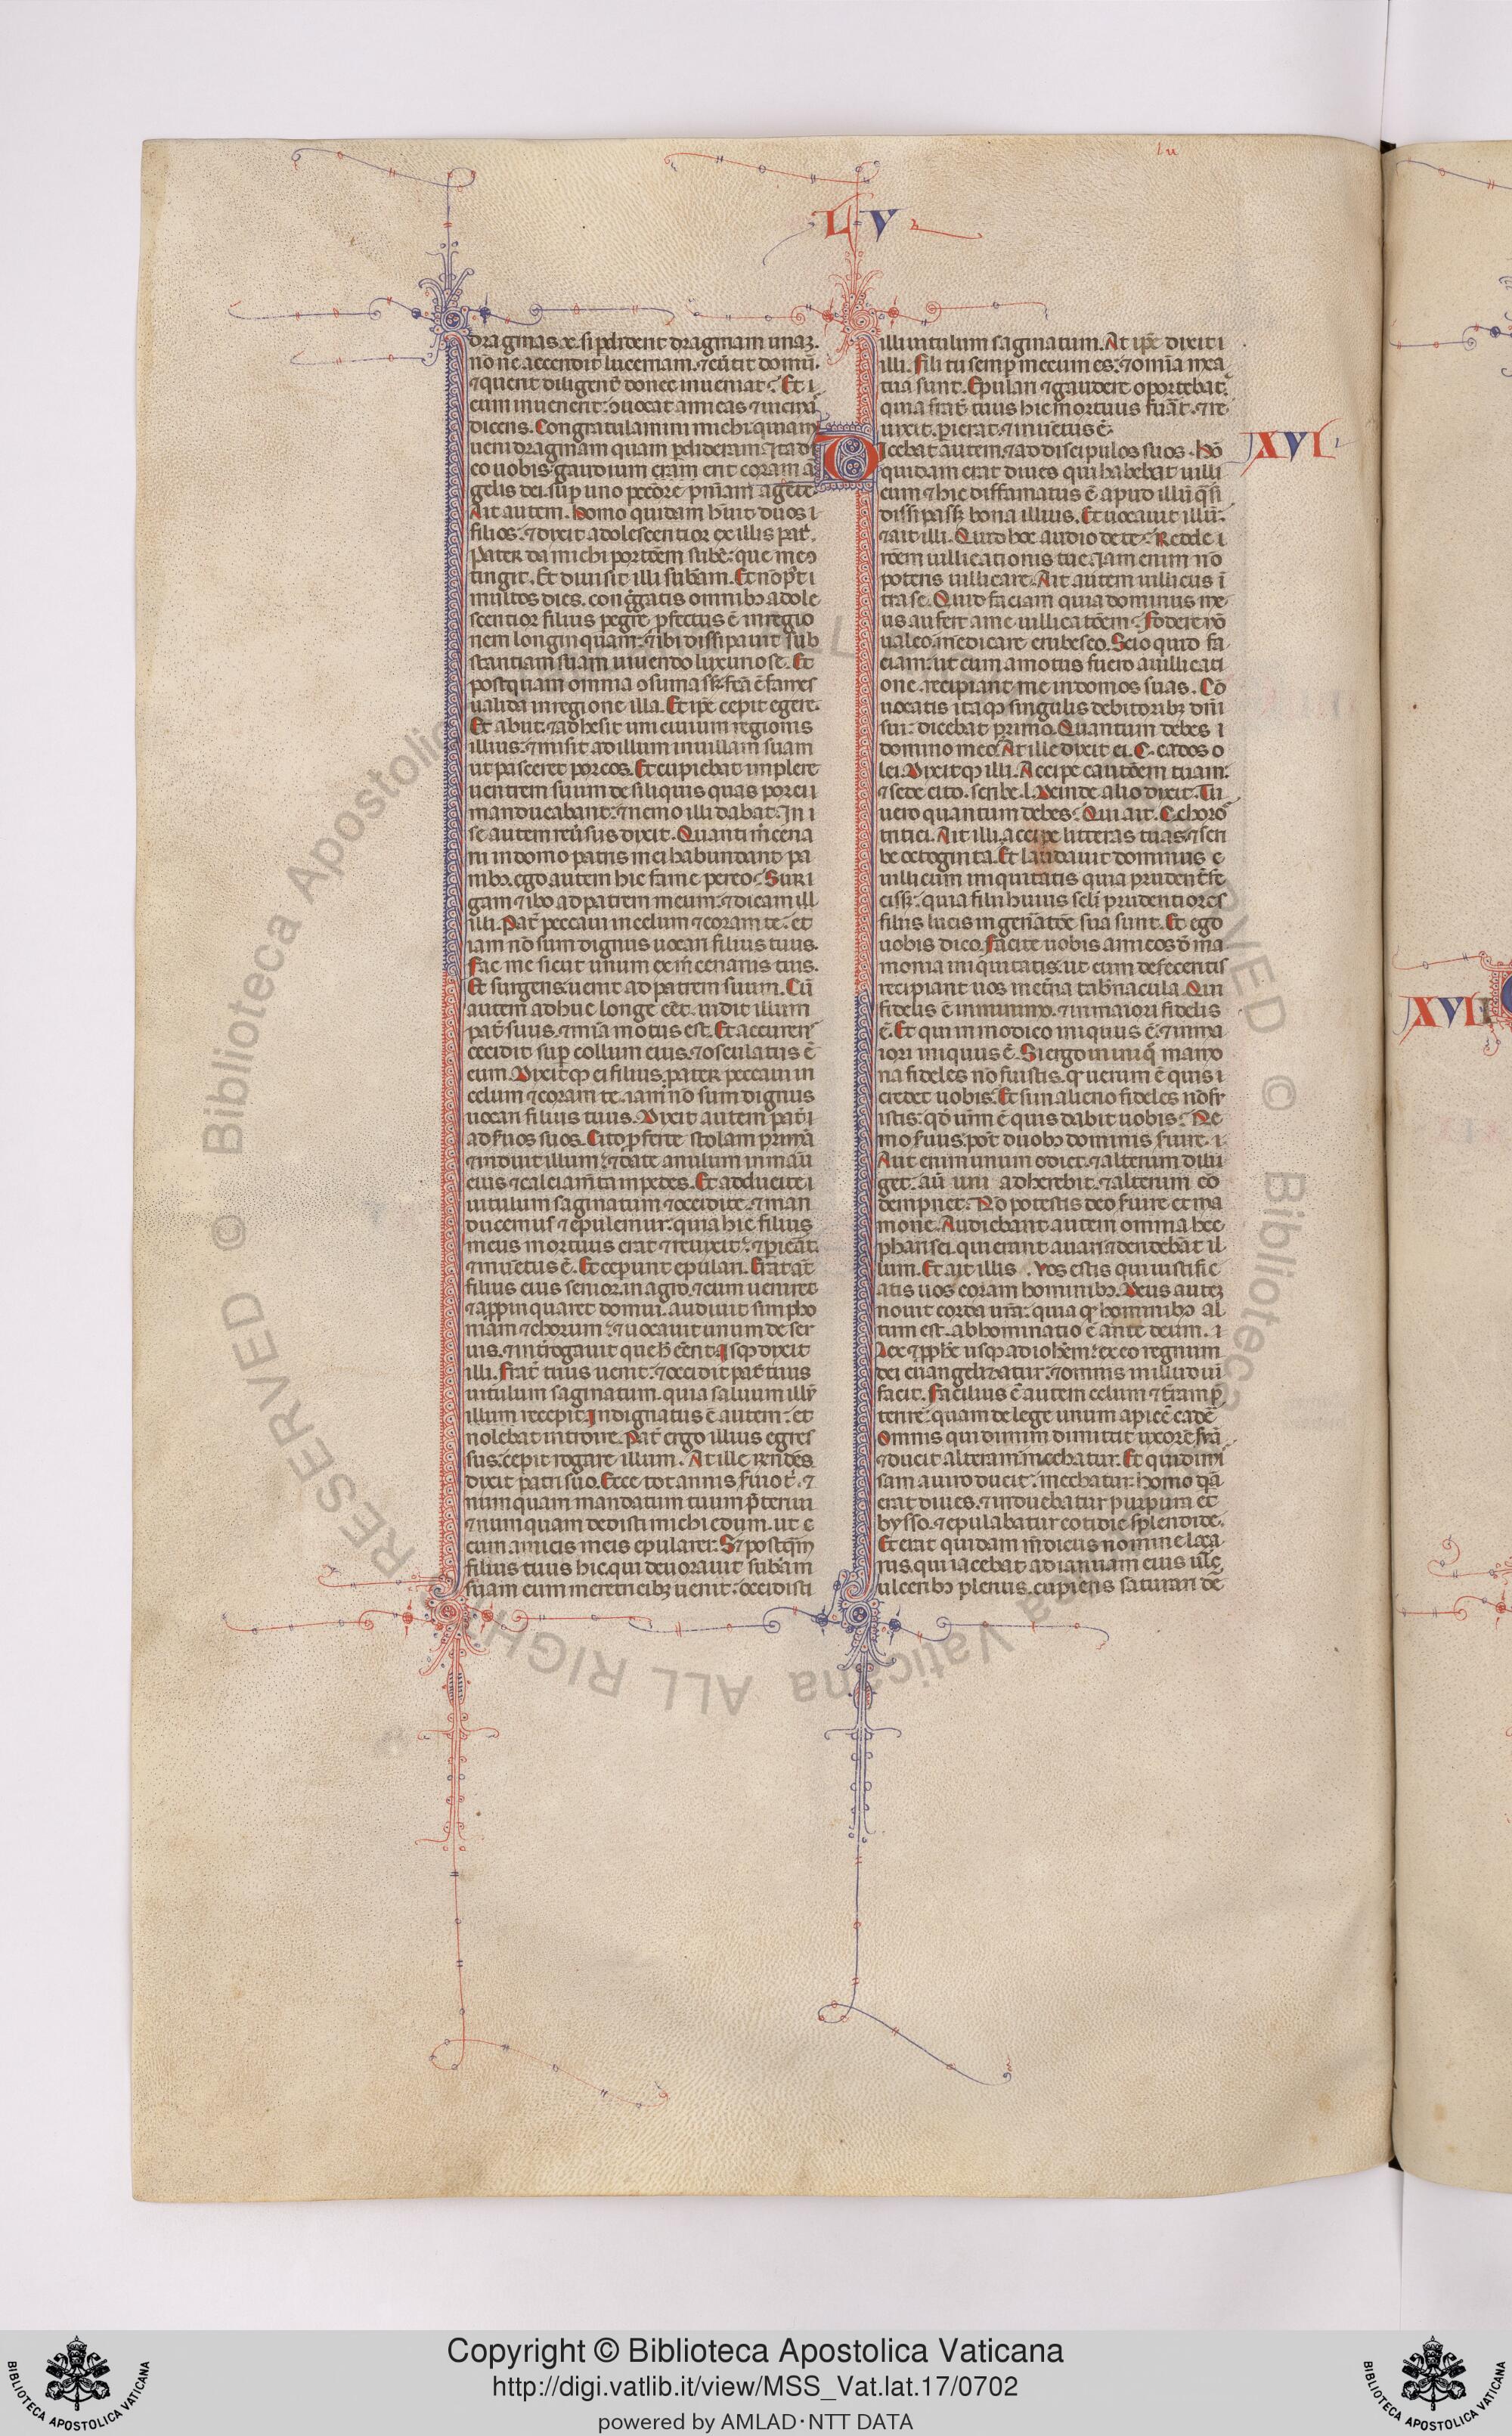 lu
LV
dragmas .x. si p̲diderit dragmam unaꝫ.
nõne accendit lucernam. ⁊ eũtit domũ.
⁊ querit diligent̃ donec inueniat. Et i
cum inuenerit: ↄuocat amicas ⁊ uicinã
dicens. Congratulamini michi quia in
ueni dragmam quam p̲dideram. Ita di
co uobis gaudium eram erit coram ã
gelis dei. sup̲ uno pecc̃ore p̲nĩam agẽte.
Ait autem. Homo quidam h̃uit duos i
filios. ⁊ dixit adolescentior ex illis pat̃.
pater da michi portõem sub̃e. que me ↄ
tingit. Et diuisit illi sub̃am. Et nõ p̲ t̃ i
multos dies. cong̃gatis omnibꝫ adole
scentior filius pegre p̲fectus ẽ in regio
nem longinquam. ⁊ ibi dissipauit sub
stantiam suam uiuendo luxuriose. Et
postquam omnia ↄsumass; fcã ẽ fames
ualida in regione illa. Et ip̃e cepit egere.
Et abiit. ⁊ adhesit uni ciuium regionis
illius. ⁊ misit ad illum in uillam suam
ut pasceret porcos. Et cupiebat implere
uentrem suum de siliquis quas porci i
manducabant. ⁊ nemo illi dabat. In i
se autem reũsus dixit. Quanti m̃cena
rii in domo patris mei habundant pa
nibꝫ. ego autem hic fame pereo. Suri
gam ⁊ ibo ad patrem meum. ⁊ dicam ill
illi. Pat̃ peccaui in celum ⁊ coram te. et
iam nõ sum dignus uocari filius tuus.
Fac me sicut unum ex m̃cenariis tuis.
Et surgens uenit ad patrem suum. Cũ
autem adhuc longe eẽt. uidit illum
pat̃ suus. ⁊ mĩa motus est. Et accurens
cecidit sup̲ collum eius. ⁊ osculatus ẽ
eum. Dixitqꝫ ei filius. pater peccaui in
celum ⁊ coram te. iam nõ sum dignus
uocari filius tuus. Dixit autem pat̃ i
ad s̃uos suos. Cito p̲ferte stolam primã
⁊ induit illum. ⁊ date anulum in manũ
eius ⁊ calciam̃ta in pedes. Et adducite i
uitulum saginatum ⁊ occidite. ⁊ man
ducemus ⁊ epulemur. quia hic filius
meus mortuus erat ⁊ reuixit. ⁊ p̲ierat.
⁊ inuẽtus ẽ. Et cep̲unt epulari. Erat aũt
filius eius senior in agro. ⁊ cum ueniret
⁊ app̲inquaret domui. audiuit simpho
niam ⁊ chorum. ⁊ uocauit unum de ser
uis. ⁊ int̃rogauit que h̃ eẽnt. Isqꝫ dixit
illi. Frat̃ tuus uenit. ⁊ occidit pat̃ tuus
uitulum saginatum. quia saluum illũ
illum recepit. Indignatus ẽ autem. et
nolebat introire. Pat̃ ergo illius egres
sus. cepit rogare illum. At ille rendẽs
dixit patri suo. Ecce tot annis s̃uio t̃. ⁊
numquam mandatum tuum p̃teriui
⁊ numquam dedisti michi edum. ut c
cum amicis meis epularer. S; postq̃m
filius tuus hic. qui deuorauit sub̃am
suam cum meretricibꝫ uenit. occidisti
illi uitulum saginatum. At ip̃e dixit i
illi. Fili tu semp̲ mecum es. ⁊ omĩa mea
tua sunt. Epulari ⁊ gaudere oportebat.
quia frat̃ tuus hic mortuus fũat. ⁊ re
uixit. p̲ierat. ⁊ inuẽtus ẽ.
XVI.
Dicebat autem. ⁊ ad discipulos suos. Hõ
quidam erat diues qui habebat uilli
cum ⁊ hic diffamatus ẽ apud illũ q̃si
dissipass; bona illius. Et uocauit illũ.
⁊ ait illi. Quid hoc audio de te. Redde i
rõem uillicationis tue. Iam enim nõ
poteris uillicare. Ait autem uillicus ĩ
tra se. Quid faciam quia dominus me
us aufert a me uillicatõem. Fodere nõ
ualeo. mendicare erubesco. Scio quid fa
ciam. ut cum amotus fuero a uillicati
one. recipiant me in domos suas. Cõ
uocatis itaqꝫ singulis debitoribꝫ dñi
sui. dicebat primo. Quantum debes i
domino meo. At ille dixit ei. C. cados o
lei. Dixitqꝫ illi. Accipe cautõem tuam.
⁊ sede cito. scribe .l. Deinde alio dixit. Tu
uero quantum debes. Qui ait. C. choros
tritici. Ait illi. accipe litteras tuas. ⁊ scri
be octoginta. Et laudauit dominus c
uillicum iniquitatis quia prudent̃ fe
ciss;. quia filii huius sc̃li prudentiores
filiis lucis in gen̲atõe sua sunt. Et ego
uobis dico. Facite uobis amicos d̃ ma
mona iniquitatis. ut cum defeceritis
recipiant uos in et̃na tab̃nacula. Qui
fidelis ẽ in minimo. ⁊ in maiori fidelis
ẽ. Et qui in modico iniquus ẽ. ⁊ in ma
iori iniquus ẽ. Si ergo in iniq̃ mamo
na fideles nõ fuistis. q̃ uerum ẽ quis i
credet uobis. Et si in alieno fideles nõ fu
istis. qd̃ ur̃m ẽ quis dabit uobis. Ne
mo s̃uus. pot̃ duobꝫ dominis s̃uire. i
Aut enim unum odiet. ⁊ alterum dili
get. aũ uni adherebit. ⁊ alterum cõ
dempnet. Nõ potestis deo s̃uire et ma
mone. Audiebant autem omnia hec
pharisei. qui erant auari ⁊ deridebãt il
lum. Et ait illis. Vos estis qui iustific
atis uos coram hominibꝫ. Deus auteꝫ
nouit corda ur̃a. quia q̃ hominibꝫ al
tum est. abhominatio ẽ ante deum. i
Lex ⁊ p̲phe usqꝫ ad ioh̃em. ex eo regnum
dei euangelizatur. ⁊ omnis in illud uĩ
facit. Facilius ẽ autem celum ⁊ t̃ram p̲
terire. quam de lege unum apicẽ cadẽ
Omnis qui dimim dimittit uxorẽ suã
⁊ ducit alteram mechatur. Et qui dimi
sam a uiro ducit. mechatur. Homo qdã
erat diues. ⁊ induebatur purpura et
bysso. ⁊ epulabatur cotidie splendide.
Et erat quidam m̃dicus nomine laza
rus. qui iacebat ad ianuam eius
ulceribꝫ plenus. cupiens saturari de
XVII
Copyright © Biblioteca Apostolica Vaticana
http://digi.vatlib.it/view/MSS_Vat.lat.17/0702
powered by AMLAD·NTT DATA
BIBLIOTECA APOSTOLICA VATICANA
BIBLIOTECA APOSTOLICA VATICANA